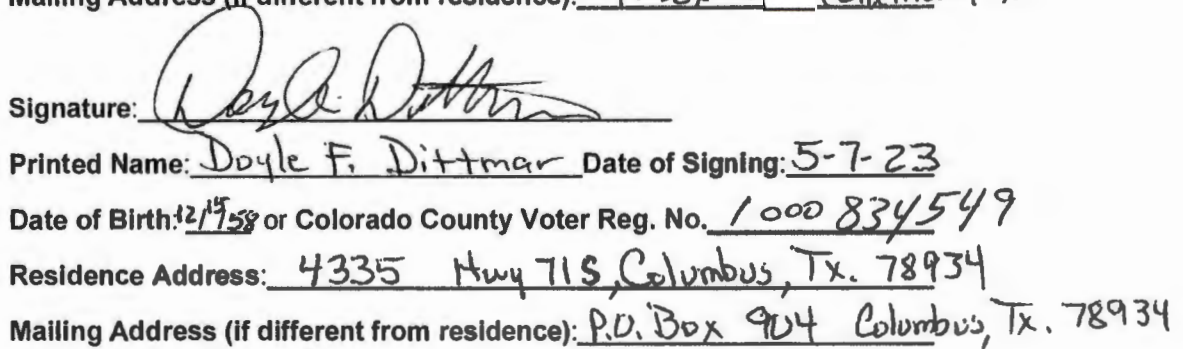 Mailing Address (if different from residence):
Signature: Doyle Dittmar
Printed Name: Doyle F. Dittmar Date of Signing: 5-7-23
Date of Birth: 12/15/58 or Colorado County Voter Reg. No. 1000834549
Residence Address: 4335 Hwy 71 S, Columbus, Tx. 78934
Mailing Address (if different from residence): P.O. Box 904 Columbus, Tx. 78934